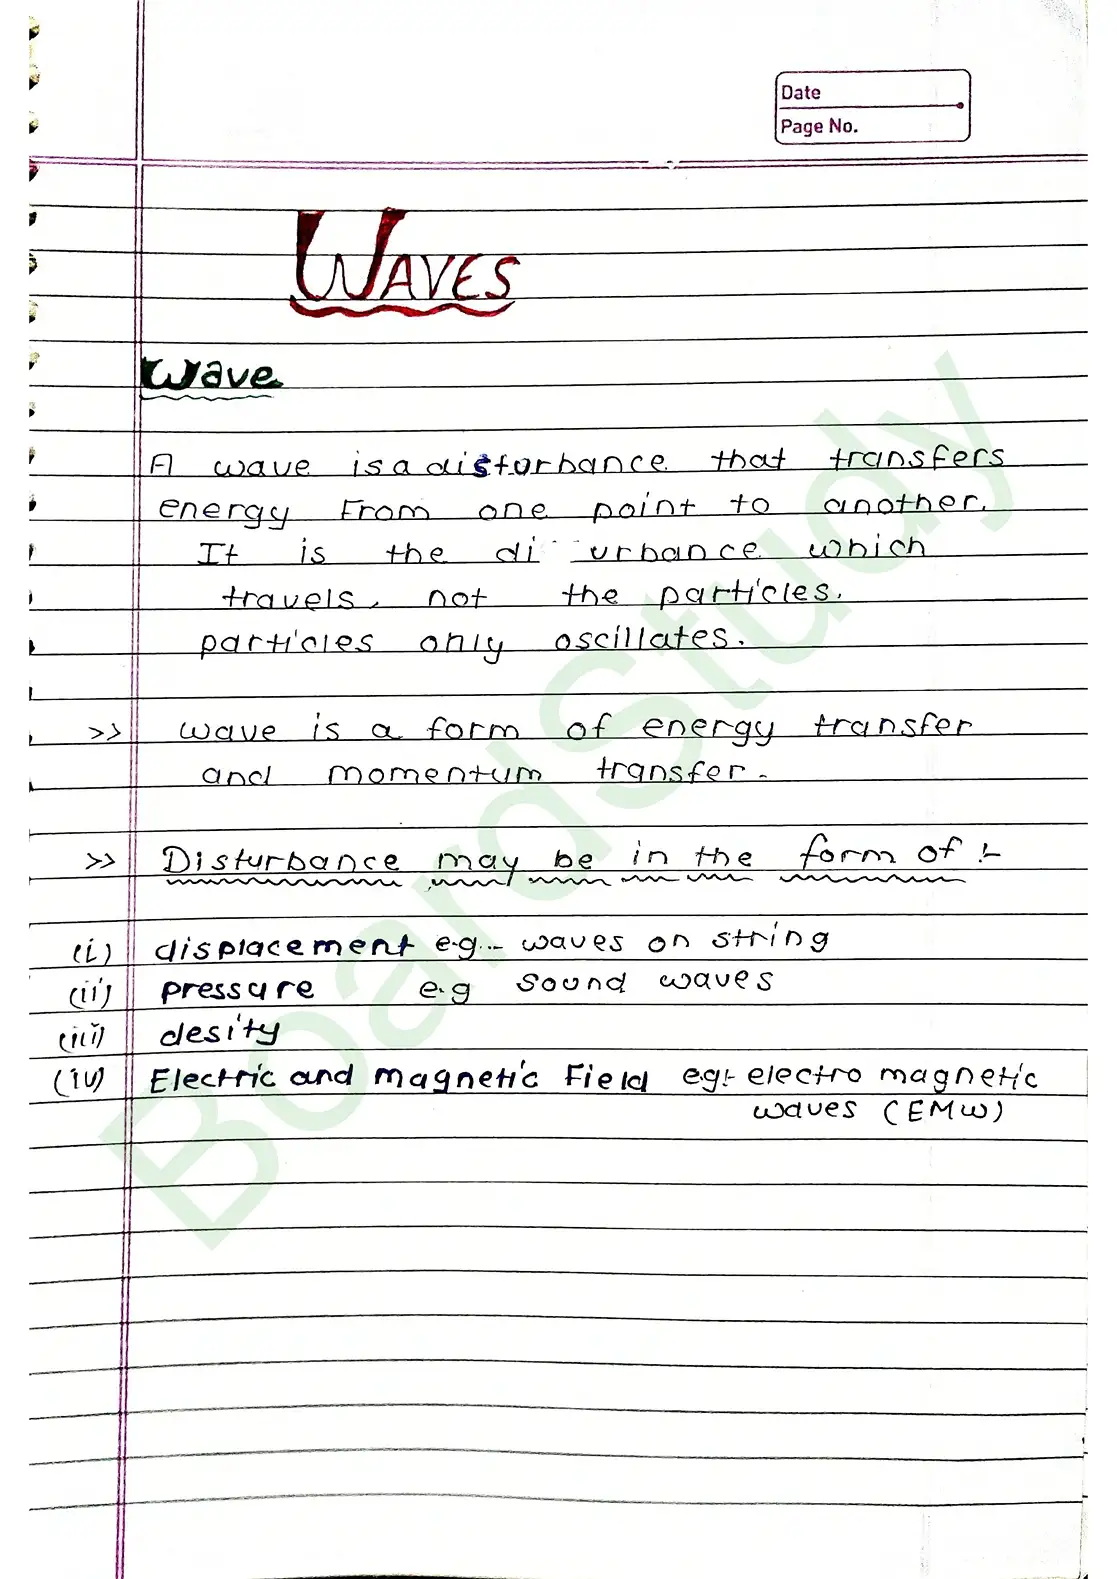 Date
Page No.
WAVES
Wave
A wave is a disturbance that transfers
energy From one point to another.
It is the di urbance which
travels, not the particles.
particles only oscillates.
>> wave is a form of energy transfer
and momentum transfer.
>> Disturbance may be in the form of :-
(i) displacement e.g.- waves on string
(ii) pressure e.g sound waves
(iii) desity
(iv) Electric and magnetic Field eg:- electro magnetic
waves (EMW)
BoardStudy